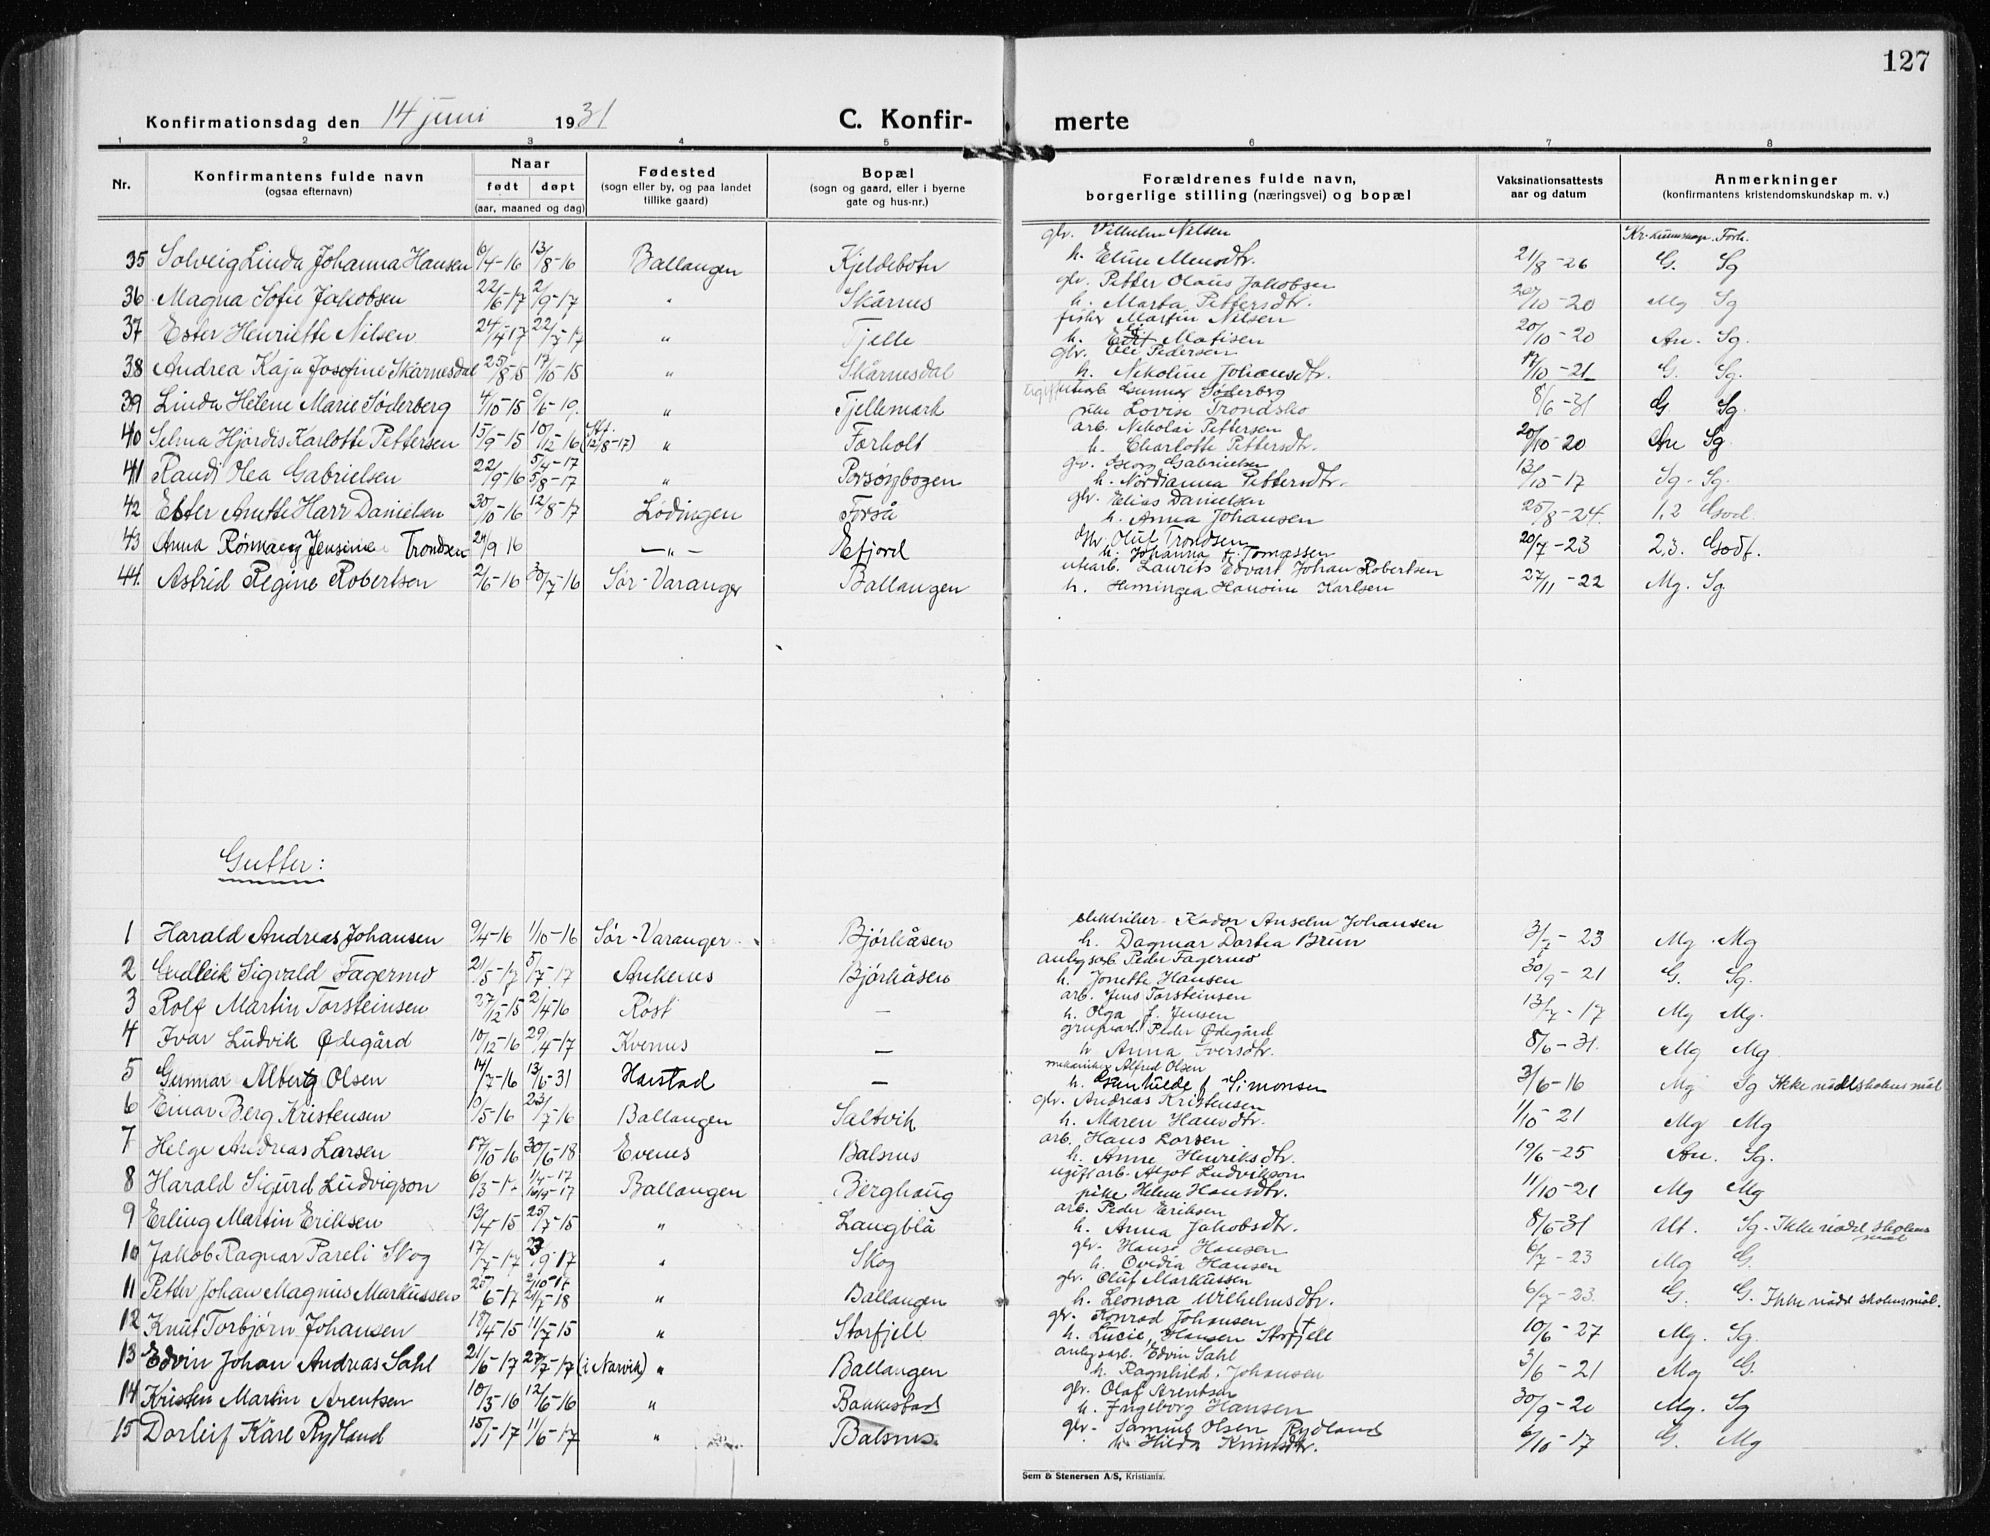 127
Konfirmationsdag den 14 juni 1931 C. Konfir- merte
1 2 3 4 5 6 7 8
Nr. Konfirmantens fulde navn (ogsaa efternavn) Naar født døpt (aar, maaned og dag) Fødested (sogn eller by, og paa landet tillike gaard) Bopæl (sogn og gaard, eller i byerne gate og hus-nr.) Forældrenes fulde navn, borgerlige stilling (næringsvei) og bopæl Vaksinationsattests aar og datum Anmerkninger (konfirmantens kristendomskundskap m. v.)
gbr. Vilhelm Nilsen Kr. kunnskap. Forh.
35 Solveig Linda Johanna Hansen 6/4-16 13/8-16 Ballangen Kjeldebotn h. Eline Monsdtr. 21/8-26 G. Sg
gbr. Petter Olaus Jakobsen
36 Magna Sofie Jakobsen 22/6-17 2/9-17 " Skårnes h. Marta Pettersdtr. 20/10-20 Mg Sg
fisker Martin Nilsen
37 Ester Henriette Nilsen 24/4 17 22/7-17 " Tjelle h. Matisen 20/10-20 An. Sg.
gbr. Ole Pedersen
38 Andrea Kaja Josefine Skårnesdal 25/8-15 17/10-15 " Skårnesdal h. Nikoline Johansdtr. 17/10-21 G. Sg.
Gunnar Söderberg
39 Linda Helene Marie Søderberg 4/10-15 6/6-19. " Tjellemark Lovise Trondsko 8/6-31 G Sg.
arb. Nikolai Pettersen
40 Selma Hjørdis Karlotte Pettersen 15/9-15 10/12-16 (st. 12/8-17) " Forholt h. Charlotte Pettersdtr. 20/10-20 An Sg.
gbr. Georg Gabrielsen
41 Randi Olea Gabrielsen 22/9-16 5/4-17 5/8-17 " h. Nordianna Pettersdtr. 13/10-17 Sg. Sg.
gbr. Elias Danielsen
42 Ester Anette Harr Danielsen 30/10-16 12/8-17 Lødingen Forså h. Anna Johansen 25/8-24. 1,2 God.
gbr. Oluf Trondsen
43 Anna Rønnaug Jensine Trondsen 24/9 16 — " — Efjord h. Johanna F. Tomassen 20/7-23 2,3. Godt.
utearb. Laurits Edvart Johan Robertsen
44. Astrid Regine Robertsen 2/6-16 30/7-16 Sør-Varanger Ballangen h. Hemingea Hansine Karlsen 27/11-22 Mg. Sg.
Gutter:
elektriker Kador Anselm Johansen
1 Harald Andreas Johansen 9/4-16 1/10-16 Sør-Varanger Bjørkåsen h. Dagmar Dortea Brun 3/7-23 Mg. Mg
anlegsarb. Peder Fagermo
2 Gudleik Sigvald Fagermo 21/5-17 5/7-17 Ankenes Bjørkåsen h. Jonette Hansen 30/9-21 G. Sg.
arb. Jens Torsteinsen
3 Rolf Martin Torsteinsen 27/12-15 2/4 16 Røst — h. Olga J. Jensen 13/7-17 Mg Mg.
gruvarb. Peder Ødegård
4 Ivar Ludvik Ødegård 10/12-16 29/4-17 Kvenes — h. Anna Iversdtr. 8/6-31. Mg Mg
mekaniker Alfred Olsen
5 Gunnar Albert Olsen 14/7-16 13/6-31 Harstad — h. f. Simonsen 3/6-16 Mg Sg Ikke nådd skolens mål
gbr. Andreas Kristensen
6 Einar Berg Kristensen 10/5-16 23/7-16 Ballangen Saltvik h. Maren Hansdtr. 1/10-21 Mg Mg
arb. Hans Larsen
7 Helge Andreas Larsen 17/10-16 30/6-18 Evenes Balsnes h. Anne Henriksdtr. 19/6-25 An. Sg.
ugift arb. Algot Ludvikson
8 Harald Sigurd Ludvigson 6/3-17 Ballangen Berghaug pike Helene Hansdtr. 11/10-21 Mg Mg
arb. Peder Eriksen
9 Erling Martin Eriksen 13/4 15 25/7-15 " Langblå h. Anna Jakobsdtr. 8/6-31 Ut. Sg. Ikke nådd skolens mål
gbr. Hans Hansen
10 Jakob Ragnar Pareli Skog 17/7-17 23/9 17 " Skog h. Ovidia Hansen 6/7-23 Mg G.
gbr. Oluf Markussen
11 Petter Johan Magnus Markussen 25/6-17 2/10-17 21/7-18 " Ballangen h. Leonora Wilhelmsdtr. 6/7-23. G. G. Ikke nådd skolens mål.
gbr. Konrad Johansen (+
12 Knut Torbjørn Johansen 17/4-15 11/7-15 " Storfjell h. Lucie Hansen Storfjell 10/6-27 Mg. Sg.
anlegsarb. Edvin Sahl
13 Edvin Johan Andreas Sahl 21/6-17 27/7-17 (i Narvik) " Ballangen h. Ragnhild Johansen 3/6-21 Mg G.
gbr. Olaf Arentsen
14 Kristen Martin Arentsen 10/3-16 12/6-16 " Bakkestad h. Ingeborg Hansen 30/9-20 Mg. Sg
gbr. Samuel Olsen Rydland
15 Dorleif Kåre Rydland 15/1-17 11/6-17 " Balsnes h. Hilda Knutsdtr. 6/10-17 G. Mg
Sem & Stenersen A/S, Kristiania.